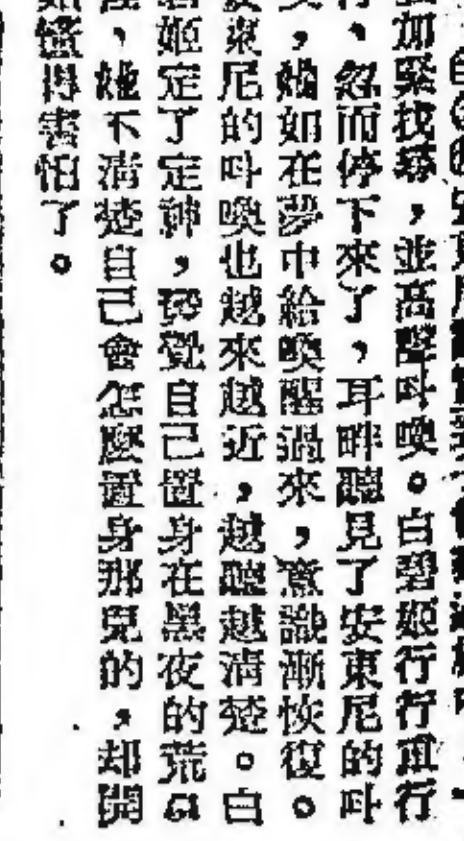 加緊找尋,並高聲呌喚。白碧姬行行重行
行,忽而停下來了,耳畔聽見了安東尼的呌
喚,她如在夢中給喚醒過來,意識漸恢復。
東尼的呌喚也越來越近,越聽越清楚。白
碧姬定了定神,發覺自己置身在黑夜的荒山
,她不清楚自己會怎麼置身那兒的,却開
始懂得害怕了。